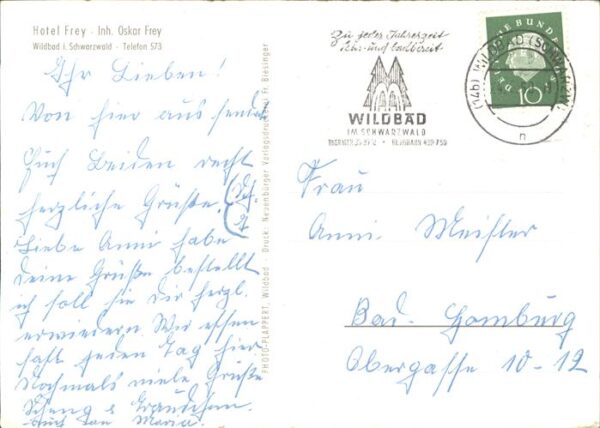 Hotel Frey - Inh. Oskar Frey
Wildbad i. Schwarzwald - Telefon 573
Ihr Lieben!
Von hier aus sende
Euch Beiden recht
herzliche Grüße.
Liebe Anni habe
Deine Grüße bestellt
ich soll sie Dir herzl.
erwiedern. Wir essen
fast jeden Tag hier.
Nochmals viele Grüße
Auch von Maria.
PHOTO-PLAPPERT, Wildbad Druck: Neuenbürger Verlagsdruckerei Fr. Biesinger
Zu jeder Jahreszeit
Kur- und badbereit
WILDBAD
IM SCHWARZWALD
DEUTSCHE BUNDESPOST
10
(14b) WILDBAD (SCHWARZW)
n
Frau
Anni Meister
Bad. Homburg
Obergasse 10-12